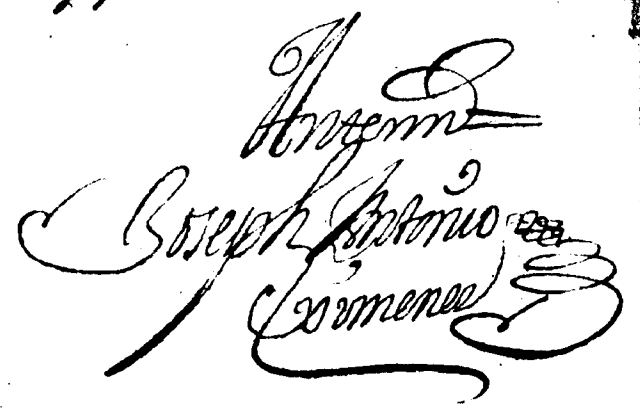 Ante mi
Joseph Antonio
Ximenez